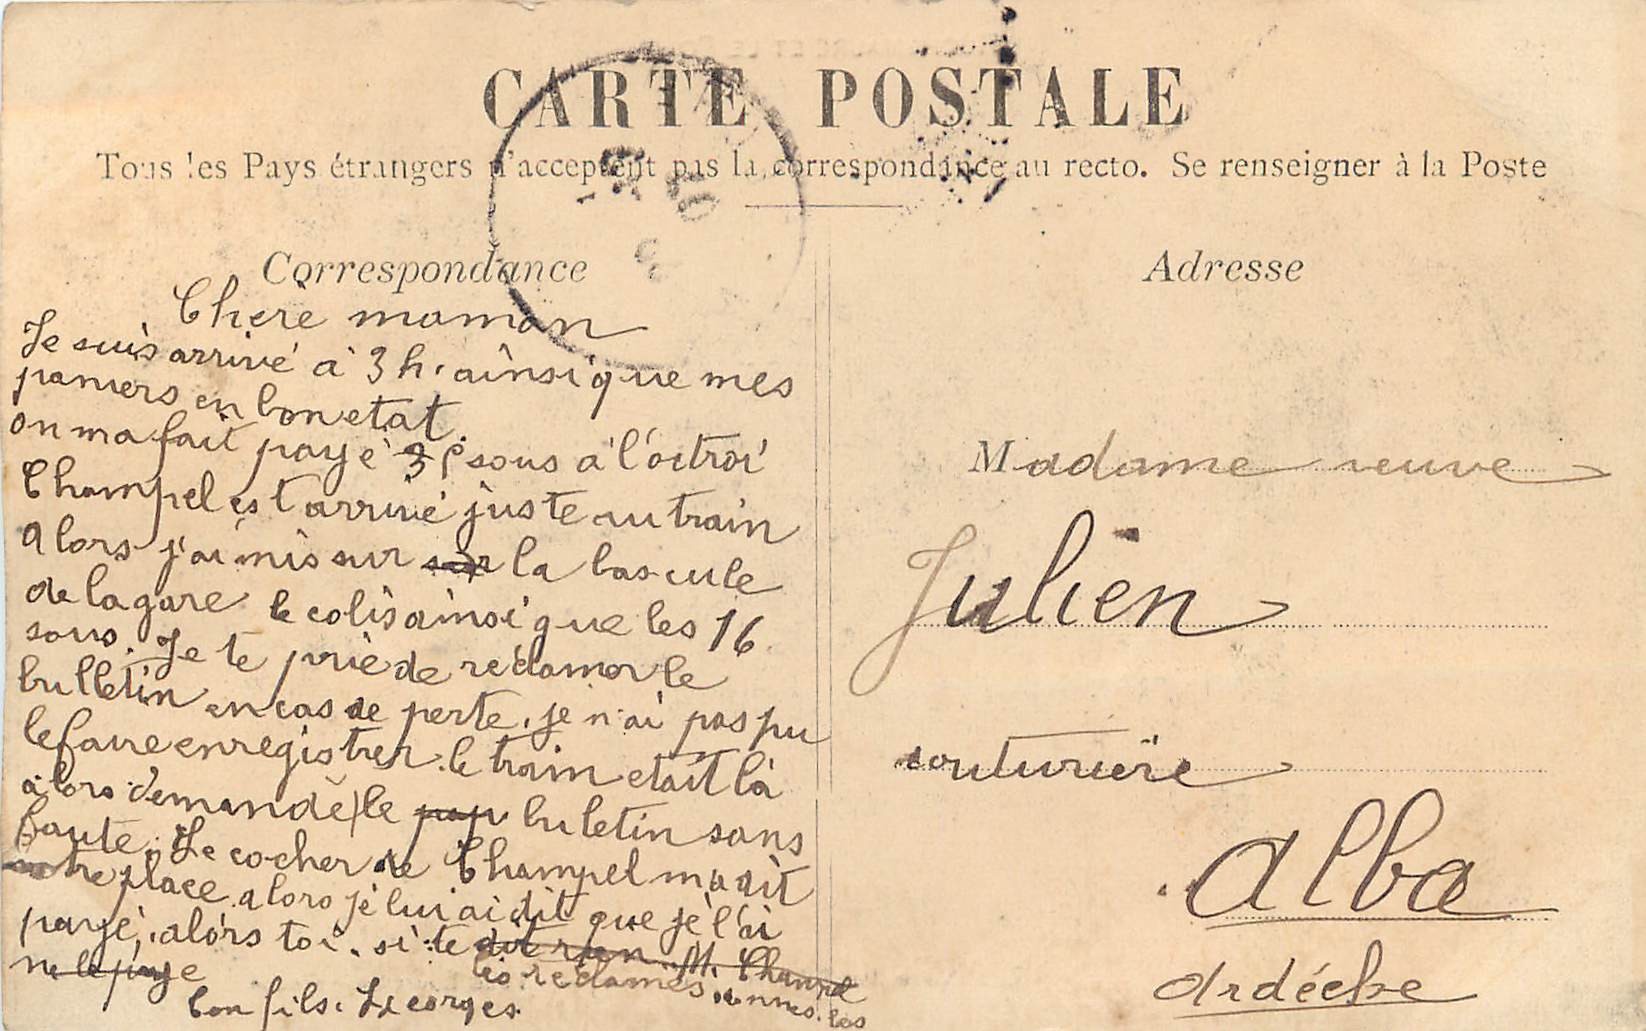 CARTE POSTALE
Tous les Pays étrangers n'acceptent pas la correspondance au recto. Se renseigner à la Poste
Correspondance
Chere maman
Je suis arrivé à 3 h. ainsi que mes
paniers en bon etat.
on ma fait payé 3 sous à l'octroi
Champel est arrivé juste au train
Alors j'ai mis sur la bascule
de la gare le colis ainsi que les 16
sous. Je te prie de reclamer le
bulletin en cas de perte. je n'ai pas pu
le faire enregistrer. le train etait là
alors demandé le buletin sans
faute. Le cocher de Champel m'a dit
place. alors je lui ai dit que je l'ai
payé, alors toi. si te dit rien M. Champel
ne le paye
les reclames donnes. les
bon fils. Georges.
Adresse
Madame veuve
Julien
couturière
Alba
Ardéche